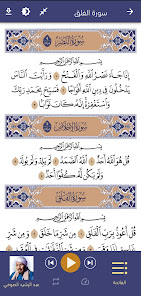 سورة الفلق
سُورَةُ النَّصْرِ
بِسْمِ اللَّهِ الرَّحْمَٰنِ الرَّحِيمِ
إِذَا جَاءَ نَصْرُ اللَّهِ وَالْفَتْحُ ۝ وَرَأَيْتَ النَّاسَ
يَدْخُلُونَ فِي دِينِ اللَّهِ أَفْوَاجًا ۝ فَسَبِّحْ بِحَمْدِ رَبِّكَ
وَاسْتَغْفِرْهُ إِنَّهُ كَانَ تَوَّابًا ۝
سُورَةُ الإِخْلَاصِ
بِسْمِ اللَّهِ الرَّحْمَٰنِ الرَّحِيمِ
قُلْ هُوَ اللَّهُ أَحَدٌ ۝ اللَّهُ الصَّمَدُ ۝ لَمْ يَلِدْ وَلَمْ يُولَدْ ۝
وَلَمْ يَكُن لَّهُ كُفُوًا أَحَدٌ ۝
سُورَةُ الْفَلَقِ
بِسْمِ اللَّهِ الرَّحْمَٰنِ الرَّحِيمِ
قُلْ أَعُوذُ بِرَبِّ الْفَلَقِ ۝ مِن شَرِّ مَا خَلَقَ ۝
عبد الرشيد الصوفي
الفاتحة